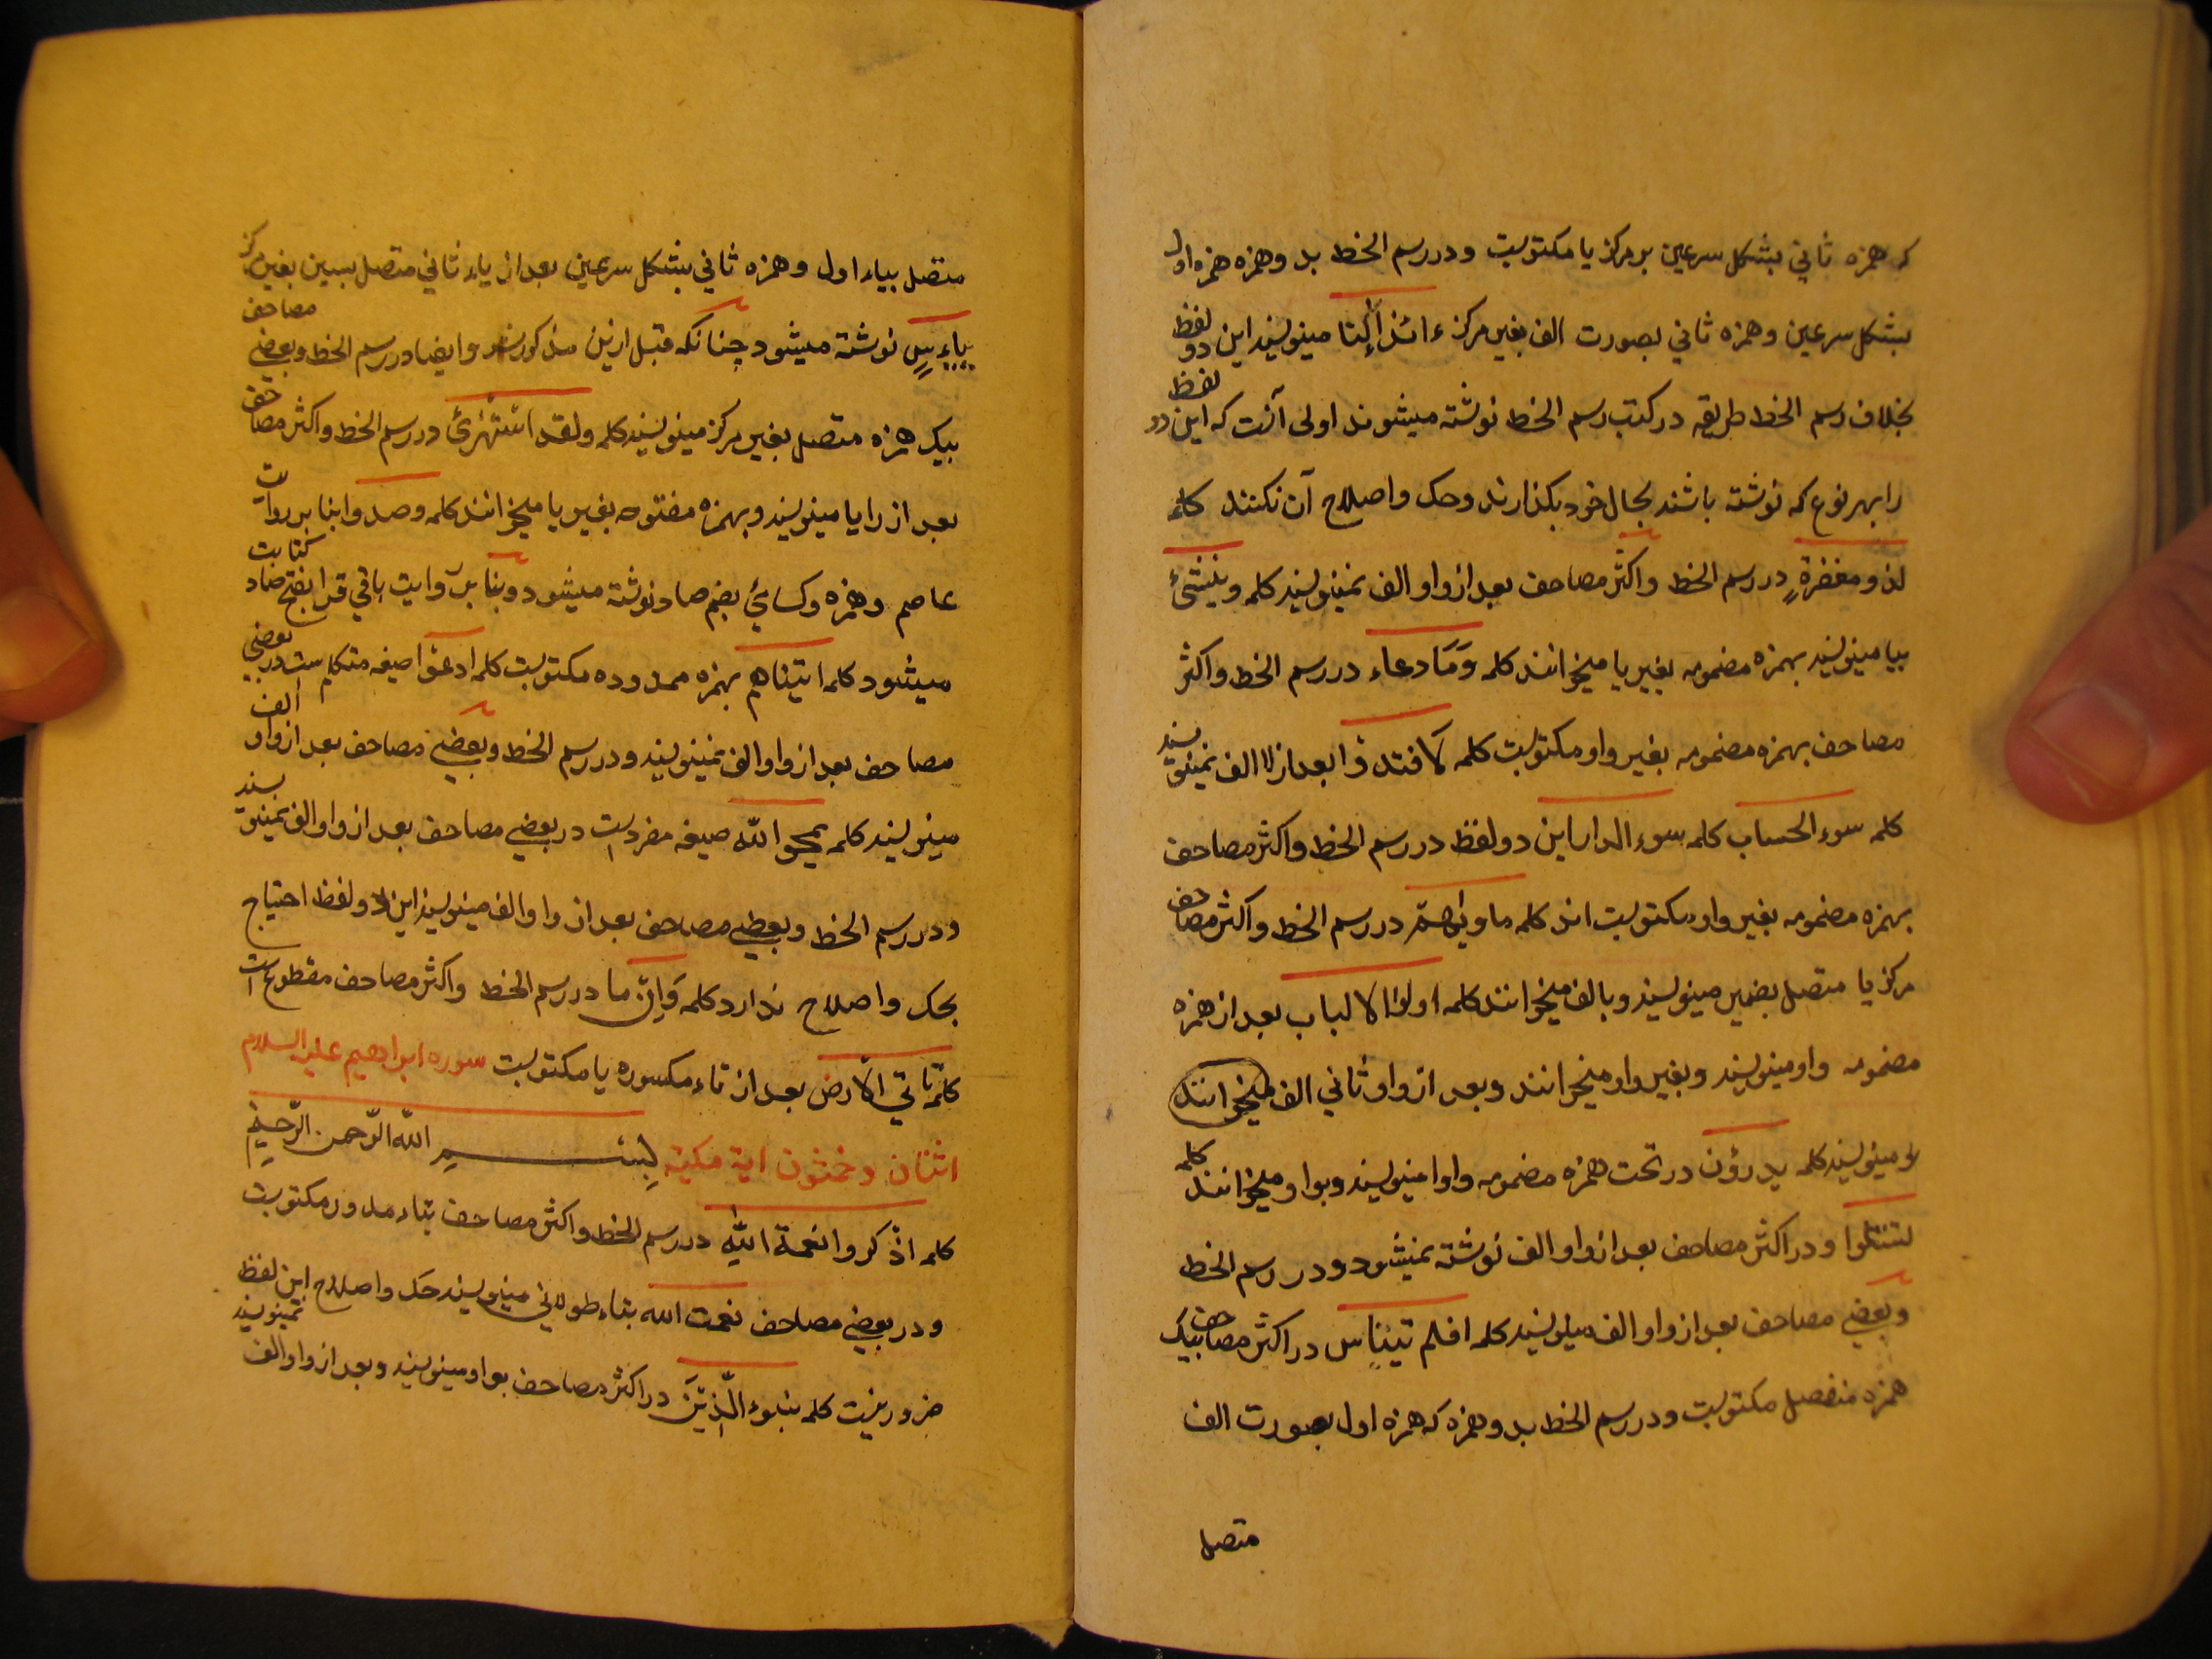 که همزه ثانی بشکل سرعین بر مرکز یا مکتوبست و در رسم الخط بد وهمزه همزه اول
بشکل سرعین وهمزه ثانی بصورت الف بغیر مرکز ءائذا کنا مینویسند این دو لفظ
بخلاف رسم الخط طریقه در کتب رسم الخط نوشته میشوند اولی آنست که این دو لفظ
را بهر نوع که نوشته باشند بحال خود بکذارند وحک واصلاح آن نکنند کلمه
لذو مغفرةٍ در رسم الخط واکثر مصاحف بعد از واو الف نمینویسند کلمه وینشئ
بیا مینویسند بهمزه مضمومه بغیر یا میخوانند کلمه وَمَا دعاء در رسم الخط واکثر
مصاحف بهمزه مضمومه بغیر واو مکتوبست کلمه لافتدوا بعد از لا الف نمینویسند
کلمه سوء الحساب کلمه سوء الدار این دو لفظ در رسم الخط واکثر مصاحف
بهمزه مضمومه بغیر واو مکتوبست اند کلمه ماویهم در رسم الخط واکثر مصاحف
مرکز یا متصل بضمیر مینویسند وبالف میخوانند کلمه اولوا الالباب بعد از همزه
مضمومه واو مینویسند وبغیر واو میخوانند وبعد از واو ثانی الف میخوانند
لو مینویسند کلمه یدرؤن در تحت همزه مضمومه واوا مینویسند وبواو میخوانند کلمه
لتتلوا ودر اکثر مصاحف بعد از واو الف نوشته نمیشود ودر رسم الخط
وبعضی مصاحف بعد از واو الف مینویسند کلمه افلم تیئاس در اکثر مصاحف بیک
همزه منفصل مکتوبست ودر رسم الخط بد وهمزه که همزه اول بصورت الف
متصل
متصل بیاء اول وهمزه ثانی بشکل سرعین بعد از یاء ثانی متصل بسین بغیر مرکز
یاءیس نوشته میشود چنانکه قبل ازین مذکور شد وایضا در رسم الخط وبعضی مصاحف
بیک همزه متصل بغیر مرکز مینویسند کلمه ولقد استهزئ در رسم الخط واکثر مصاحف
بعد از را یا مینویسند وبهمزه مفتوحه بغیر یا میخوانند کلمه وصدوا بنا بر روایت
عاصم وحمزه وکسائی بضم صاد نوشته میشود وبنا بر روایت باقی قرا بفتح صاد کتابت
میشود کلمه اتیناهم بهمزه ممدوده مکتوبست کلمه ادعوا صیغه متکلم است در بعضی
مصاحف بعد از واو الف نمینویسند ودر رسم الخط وبعضی مصاحف بعد از واو الف
مینویسند کلمه یمحو الله صیغه مفرد است در بعضی مصاحف بعد از واو الف نمینویسند
ودر رسم الخط وبعضی مصاحف بعد از واو الف مینویسند این دو لفظ احتیاج
بحک واصلاح ندارد کلمه وَاِنْ ما در رسم الخط واکثر مصاحف مقطوع است
کلمه ناتی الارض بعد از تاء مکسوره یا مکتوبست سوره ابراهیم علیه السلام
اثنان وخمثون ایة مکیّة بِسْمِ الله الرّحمن الرّحیم
کلمه اذکروا نعمة الله در رسم الخط واکثر مصاحف بتاء مدور مکتوبست
ودر بعضی مصاحف نعمت الله بتاء طولانی مینویسند حک واصلاح این لفظ
ضرور نیست کلمه نبوء الّذین در اکثر مصاحف بواو مینویسند وبعد از واو الف نمینویسند